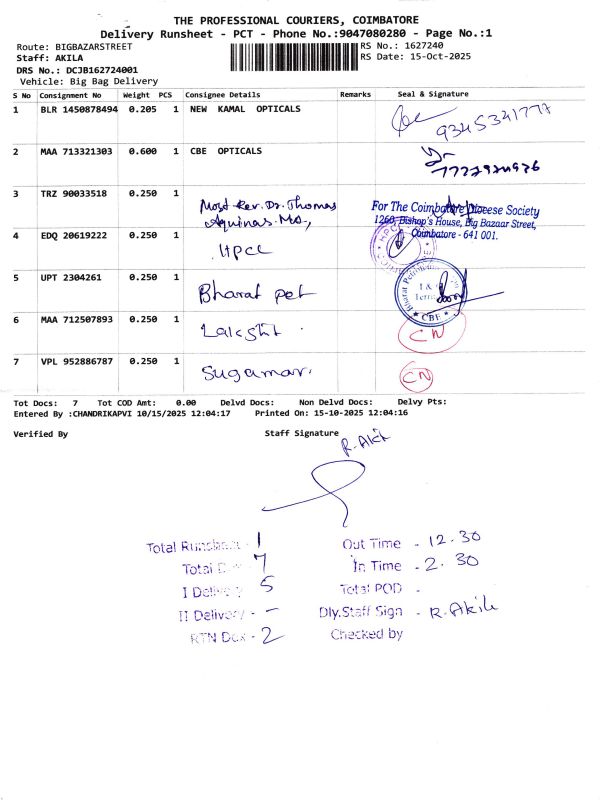 THE PROFESSIONAL COURIERS, COIMBATORE
Delivery Runsheet - PCT - Phone No.:9047080280 - Page No.:1
Route: BIGBAZARSTREET RS No.: 1627240
Staff: AKILA RS Date: 15-Oct-2025
DRS No.: DCJB162724001
Vehicle: Big Bag Delivery
S No Consignment No Weight PCS Consignee Details Remarks Seal & Signature
1 BLR 1450878494 0.205 1 NEW KAMAL OPTICALS 9345341777
2 MAA 713321303 0.600 1 CBE OPTICALS
3 TRZ 90033518 0.250 1 Most Rev. Dr. Thomas
Aquinas. MA.,
For The Coimbatore Diocese Society
1260, Bishop's House, Big Bazaar Street,
Coimbatore - 641 001.
4 EDQ 20619222 0.250 1 HPCL
5 UPT 2304261 0.250 1 Bharat pet
Bharat
CBE
6 MAA 712507893 0.250 1 CN
7 VPL 952886787 0.250 1 Sugamar. CN
Tot Docs: 7 Tot COD Amt: 0.00 Delvd Docs: Non Delvd Docs: Delvy Pts:
Entered By :CHANDRIKAPVI 10/15/2025 12:04:17 Printed On: 15-10-2025 12:04:16
Verified By Staff Signature
R. Akil
Total Runsheet - 1 Out Time - 12.30
Total Dox - 7 In Time - 2.30
I Delivery - 5 Total POD -
II Delivery - - Dly.Staff Sign - R. Akil
RTN Dox - 2 Checked by